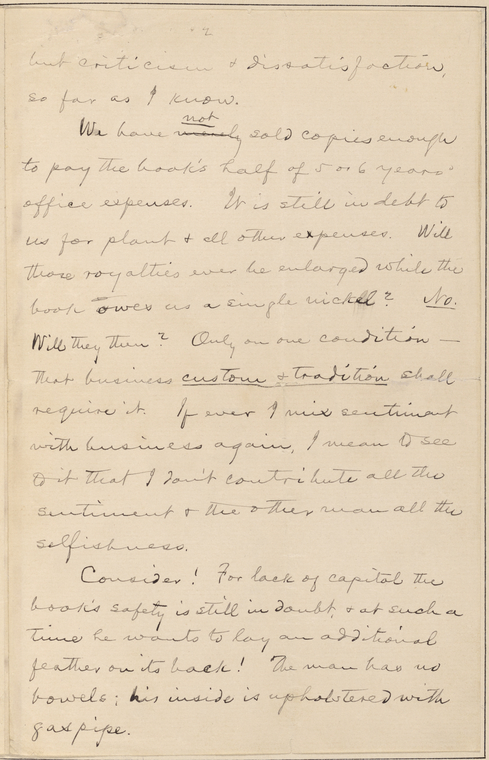 2
but criticism & dissatisfaction,
so far as I know.
not
We have merely sold copies enough
to pay the book's half of 5 or 6 years'
office expenses. It is still in debt to
us for plant & all other expenses. Will
those royalties ever be enlarged while the
book owes us a single nickel? No.
Will they then? Only on one condition —
that business custom & tradition shall
require it. If ever I mix sentiment
with business again, I mean to see
to it that I don't contribute all the
sentiment & the other man all the
selfishness.
Consider! For lack of capital the
book's safety is still in doubt, & at such a
time he wants to lay an additional
feather on its back! The man has no
bowels; his inside is upholstered with
gaspipe.